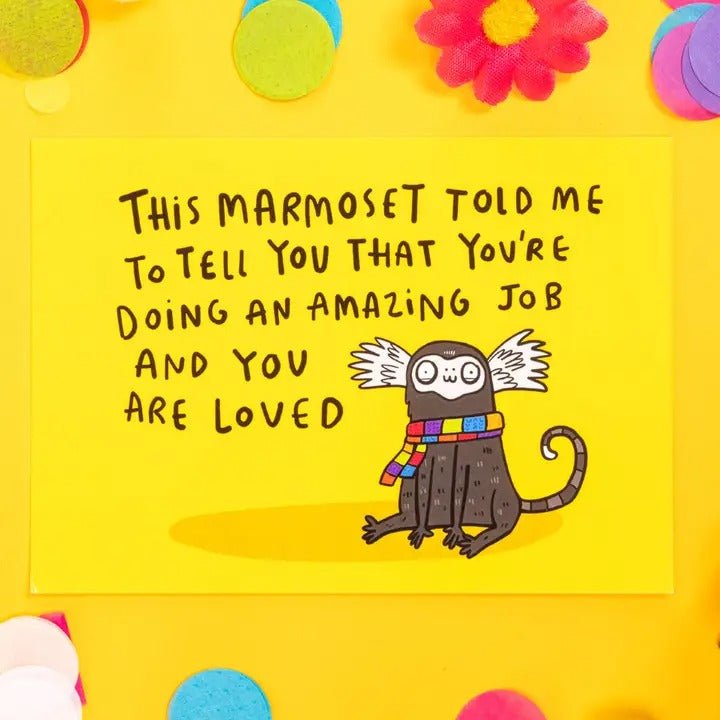 THiS MARMOSET TOLD ME
TO TELL YOU THAT YOU'RE
DOING AN AMAZING JOB
AND YOU
ARE LOVED